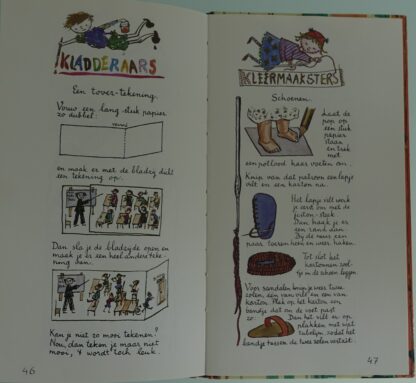 KLADDERAARS
Een tover-tekening.
Vouw een lang stuk papier
zo dubbel:
en maak er met de bladzij dicht
een tekening op.
Dan sla je de bladzijde open en
maak je er een heel andere teke-
ning van.
Kan je niet zo mooi tekenen?
Nou, dan teken je maar niet
mooi, 't wordt toch leuk.
46
KLEERMAAKSTERS
Schoenen.
Laat de
pop op
een stuk
papier
staan
en trek
met
een potlood haar voeten om.
Knip van dat patroon een lapje
vilt en een karton na.
Het lapje vilt werk
je eerst om met de
feston-steek.
Dan haak je er
een rand aan.
Bij de neus een
paar toeren heen en weer haken.
Tot slot het
kartonnen zool-
tje in de schoen leggen.
Voor sandalen knip je weer twee
zolen, een van vilt en een van
karton. Plak op het karton een
bandje dat om de voet past
zo:
Dan het vilt er op
plakken met wat
tubelijm zodat het
bandje tussen de twee zolen vastzit.
47